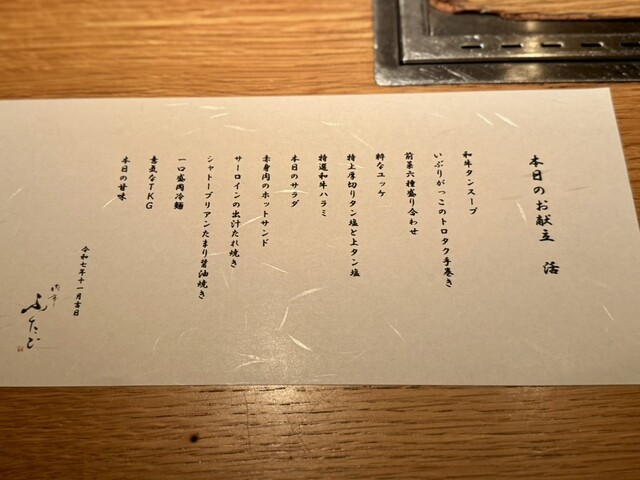 本日のお献立　活
和牛タンスープ
いぶりがっこのトロタク手巻き
前菜六種盛り合わせ
粋なユッケ
特上厚切りタン塩と上タン塩
特選和牛ハラミ
本日のサラダ
赤身肉のホットサンド
サーロインの出汁たれ焼き
シャトーブリアンたまり醤油焼き
一口盛岡冷麺
喜気なTKG
本日の甘味
令和七年十一月吉日
ふたご